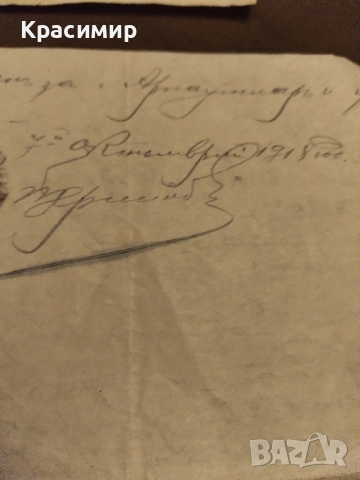 Красимир
да с. Арнаутлар и
7й Октомврий 1918 год.
BAZAR
bg